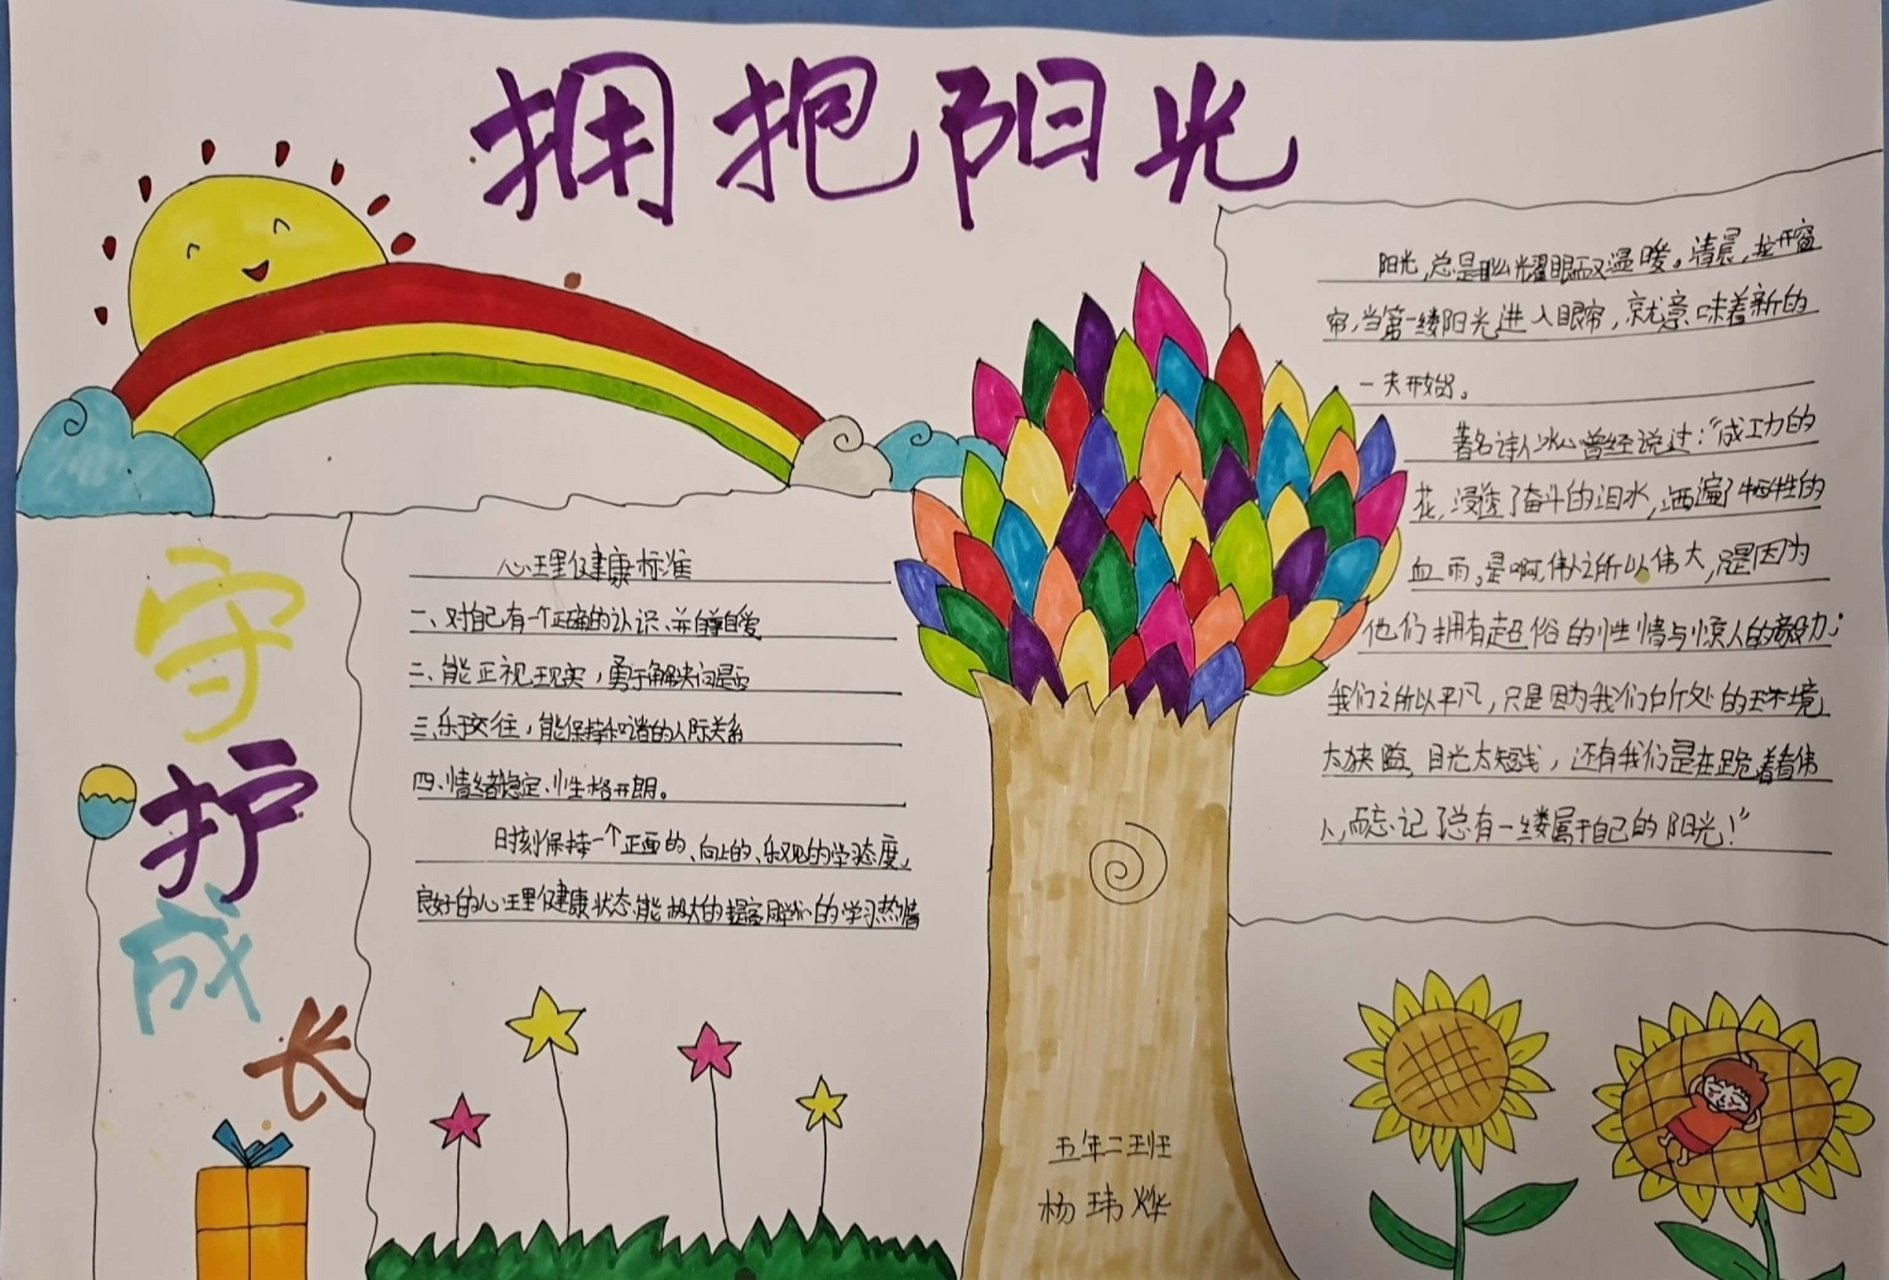 拥抱阳光
守护成长
心理健康标准
一、对自己有一个正确的认识、并自尊自爱
二、能正视现实，勇于解决问题
三、乐于交往，能保持和谐的人际关系
四、情绪稳定、性格开朗。
时刻保持一个正面的、向上的、乐观的学习态度、
良好的心理健康状态，能极大的提高同学们的学习热情
阳光，总是那么光耀眼而又温暖。清晨，拉开窗
帘，当第一缕阳光进入眼帘，就意味着新的
一天开始。
著名诗人冰心曾经说过：“成功的
花，浸透了奋斗的泪水，洒遍了牺牲的
血雨。是啊，伟人之所以伟大，是因为
他们拥有超俗的性情与惊人的毅力；
我们之所以平凡，只是因为我们所处的环境
太狭隘，目光太短浅，还有我们是在跪着看伟
人，而忘记了总有一缕属于自己的阳光！”
五年二班
杨玮烨